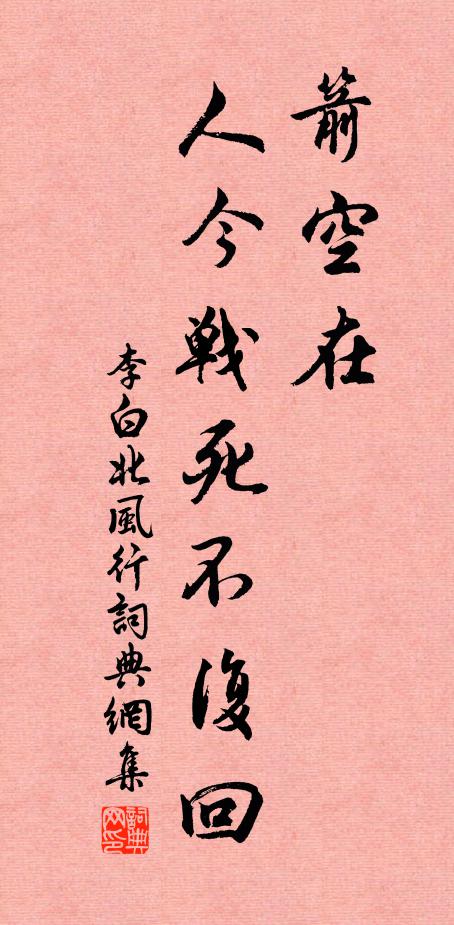 箭空在
人今戰死不復回
李白北風行詞典網集
詞典网印